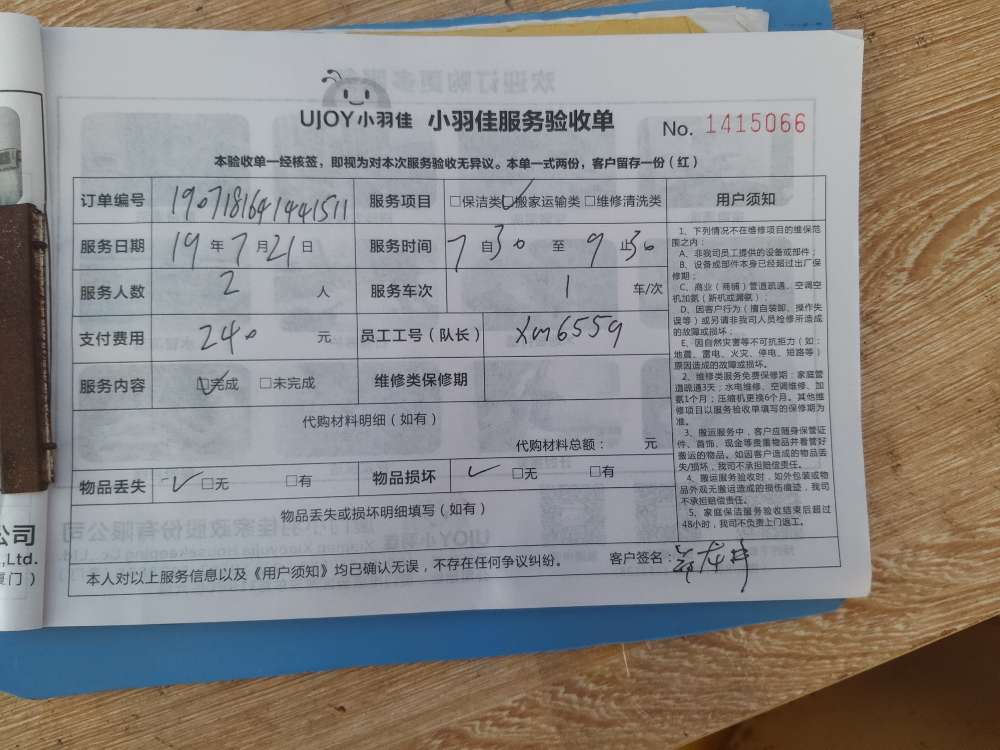 UJOY小羽佳 小羽佳服务验收单 No. 1415066
本验收单一经核签，即视为对本次服务验收无异议。本单一式两份，客户留存一份（红）
订单编号 1907181641441511 服务项目 □保洁类 □搬家运输类 □维修清洗类
服务日期 19 年 7 月 21 日 服务时间 7 自 30 至 9 止 30
服务人数 2 人 服务车次 1 车/次
支付费用 240 元 员工工号（队长） Xm6559
服务内容 □完成 □未完成 维修类保修期
代购材料明细（如有）
代购材料总额： 元
物品丢失 □无 □有 物品损坏 □无 □有
物品丢失或损坏明细填写（如有）
本人对以上服务信息以及《用户须知》均已确认无误，不存在任何争议纠纷。 客户签名：
用户须知
1、下列情况不在维修项目的维保范
围之内：
A、非我司员工提供的设备或部件；
B、设备或部件本身已经超过出厂保
修期；
C、商业（商铺）管道疏通、空调空
机加氨（新机或漏氨）；
D、因客户行为（擅自装卸、操作失
误等）或另请非我司人员检修所造成
的故障或损坏；
E、因自然灾害等不可抗拒力（如：
地震、雷电、火灾、停电、短路等）
原因造成的故障或损坏。
2、维修类服务免费保修期：家庭管
道疏通3天；水电维修、空调维修、加
氨1个月；压缩机更换6个月。其他维
修项目以服务验收单填写的保修期为
准。
3、搬运服务中，客户应随身保管证
件、首饰、现金等贵重物品并看管好
搬运的物品。如因客户造成的物品丢
失/损坏，我司不承担赔偿责任。
4、搬运服务验收时，如外包装或物
品外观无搬运造成的损伤痕迹，我司
不承担赔偿责任。
5、家庭保洁服务验收结束后超过
48小时，我司不负责上门返工。
公司
,Ltd.
厦门）